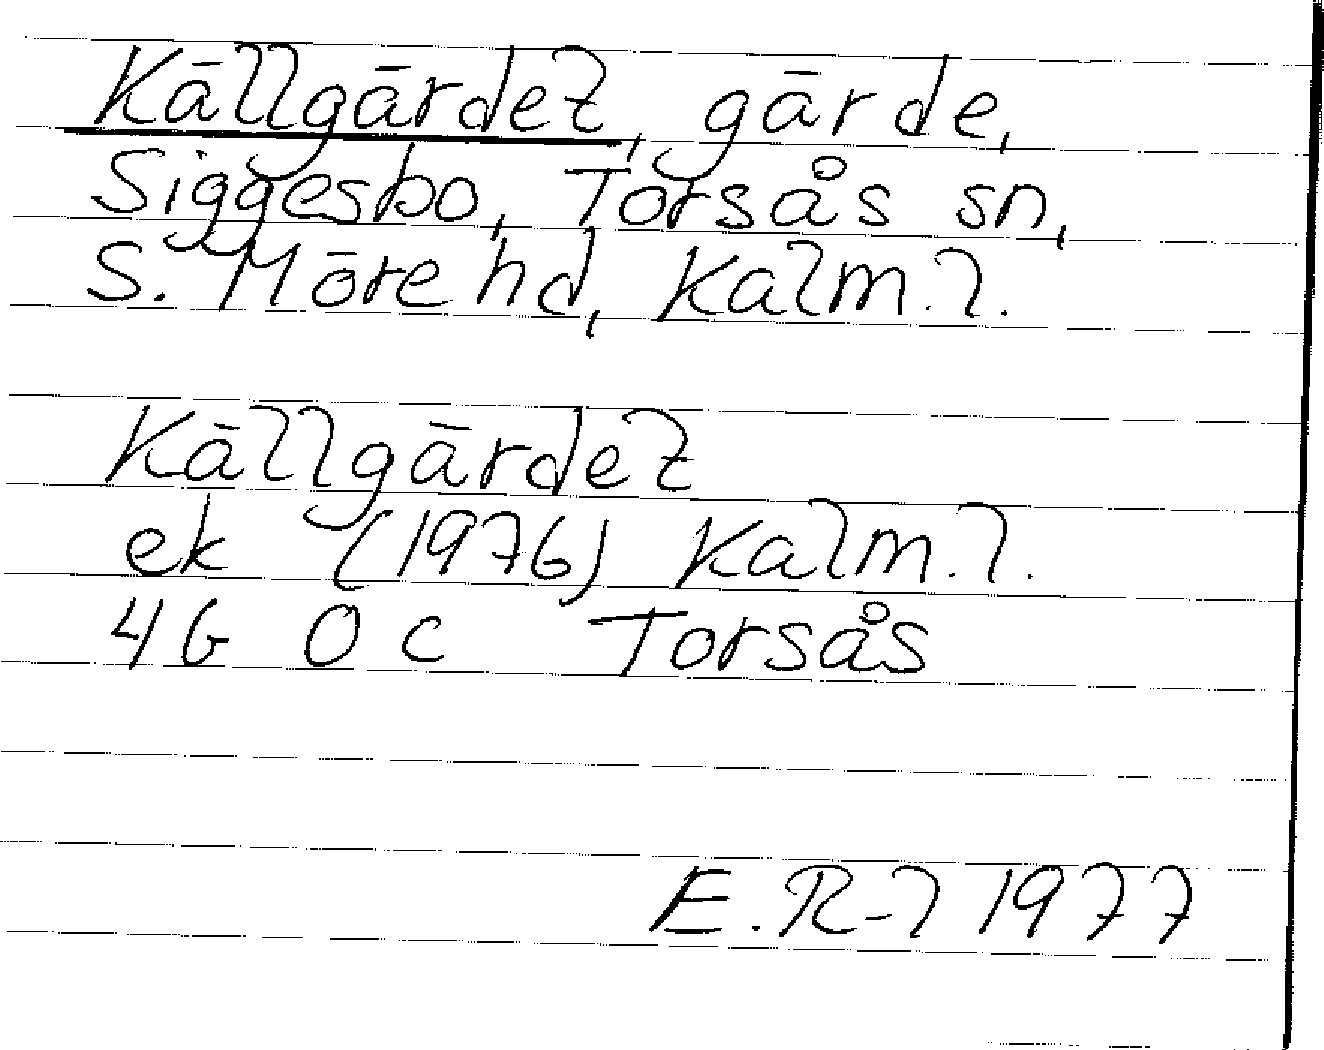 Källgärdet, gärde,
Siggesbo, Torsås sn,
S. Möre hd, Kalm. l.
Källgärdet
ek (1976) Kalm. l.
4G 0c Torsås
E. R-l 1977